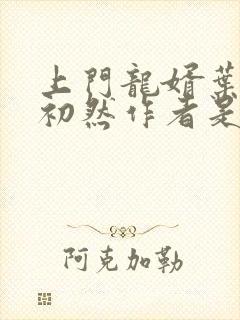 上門龍婿葉
初然作者是
阿克加勒